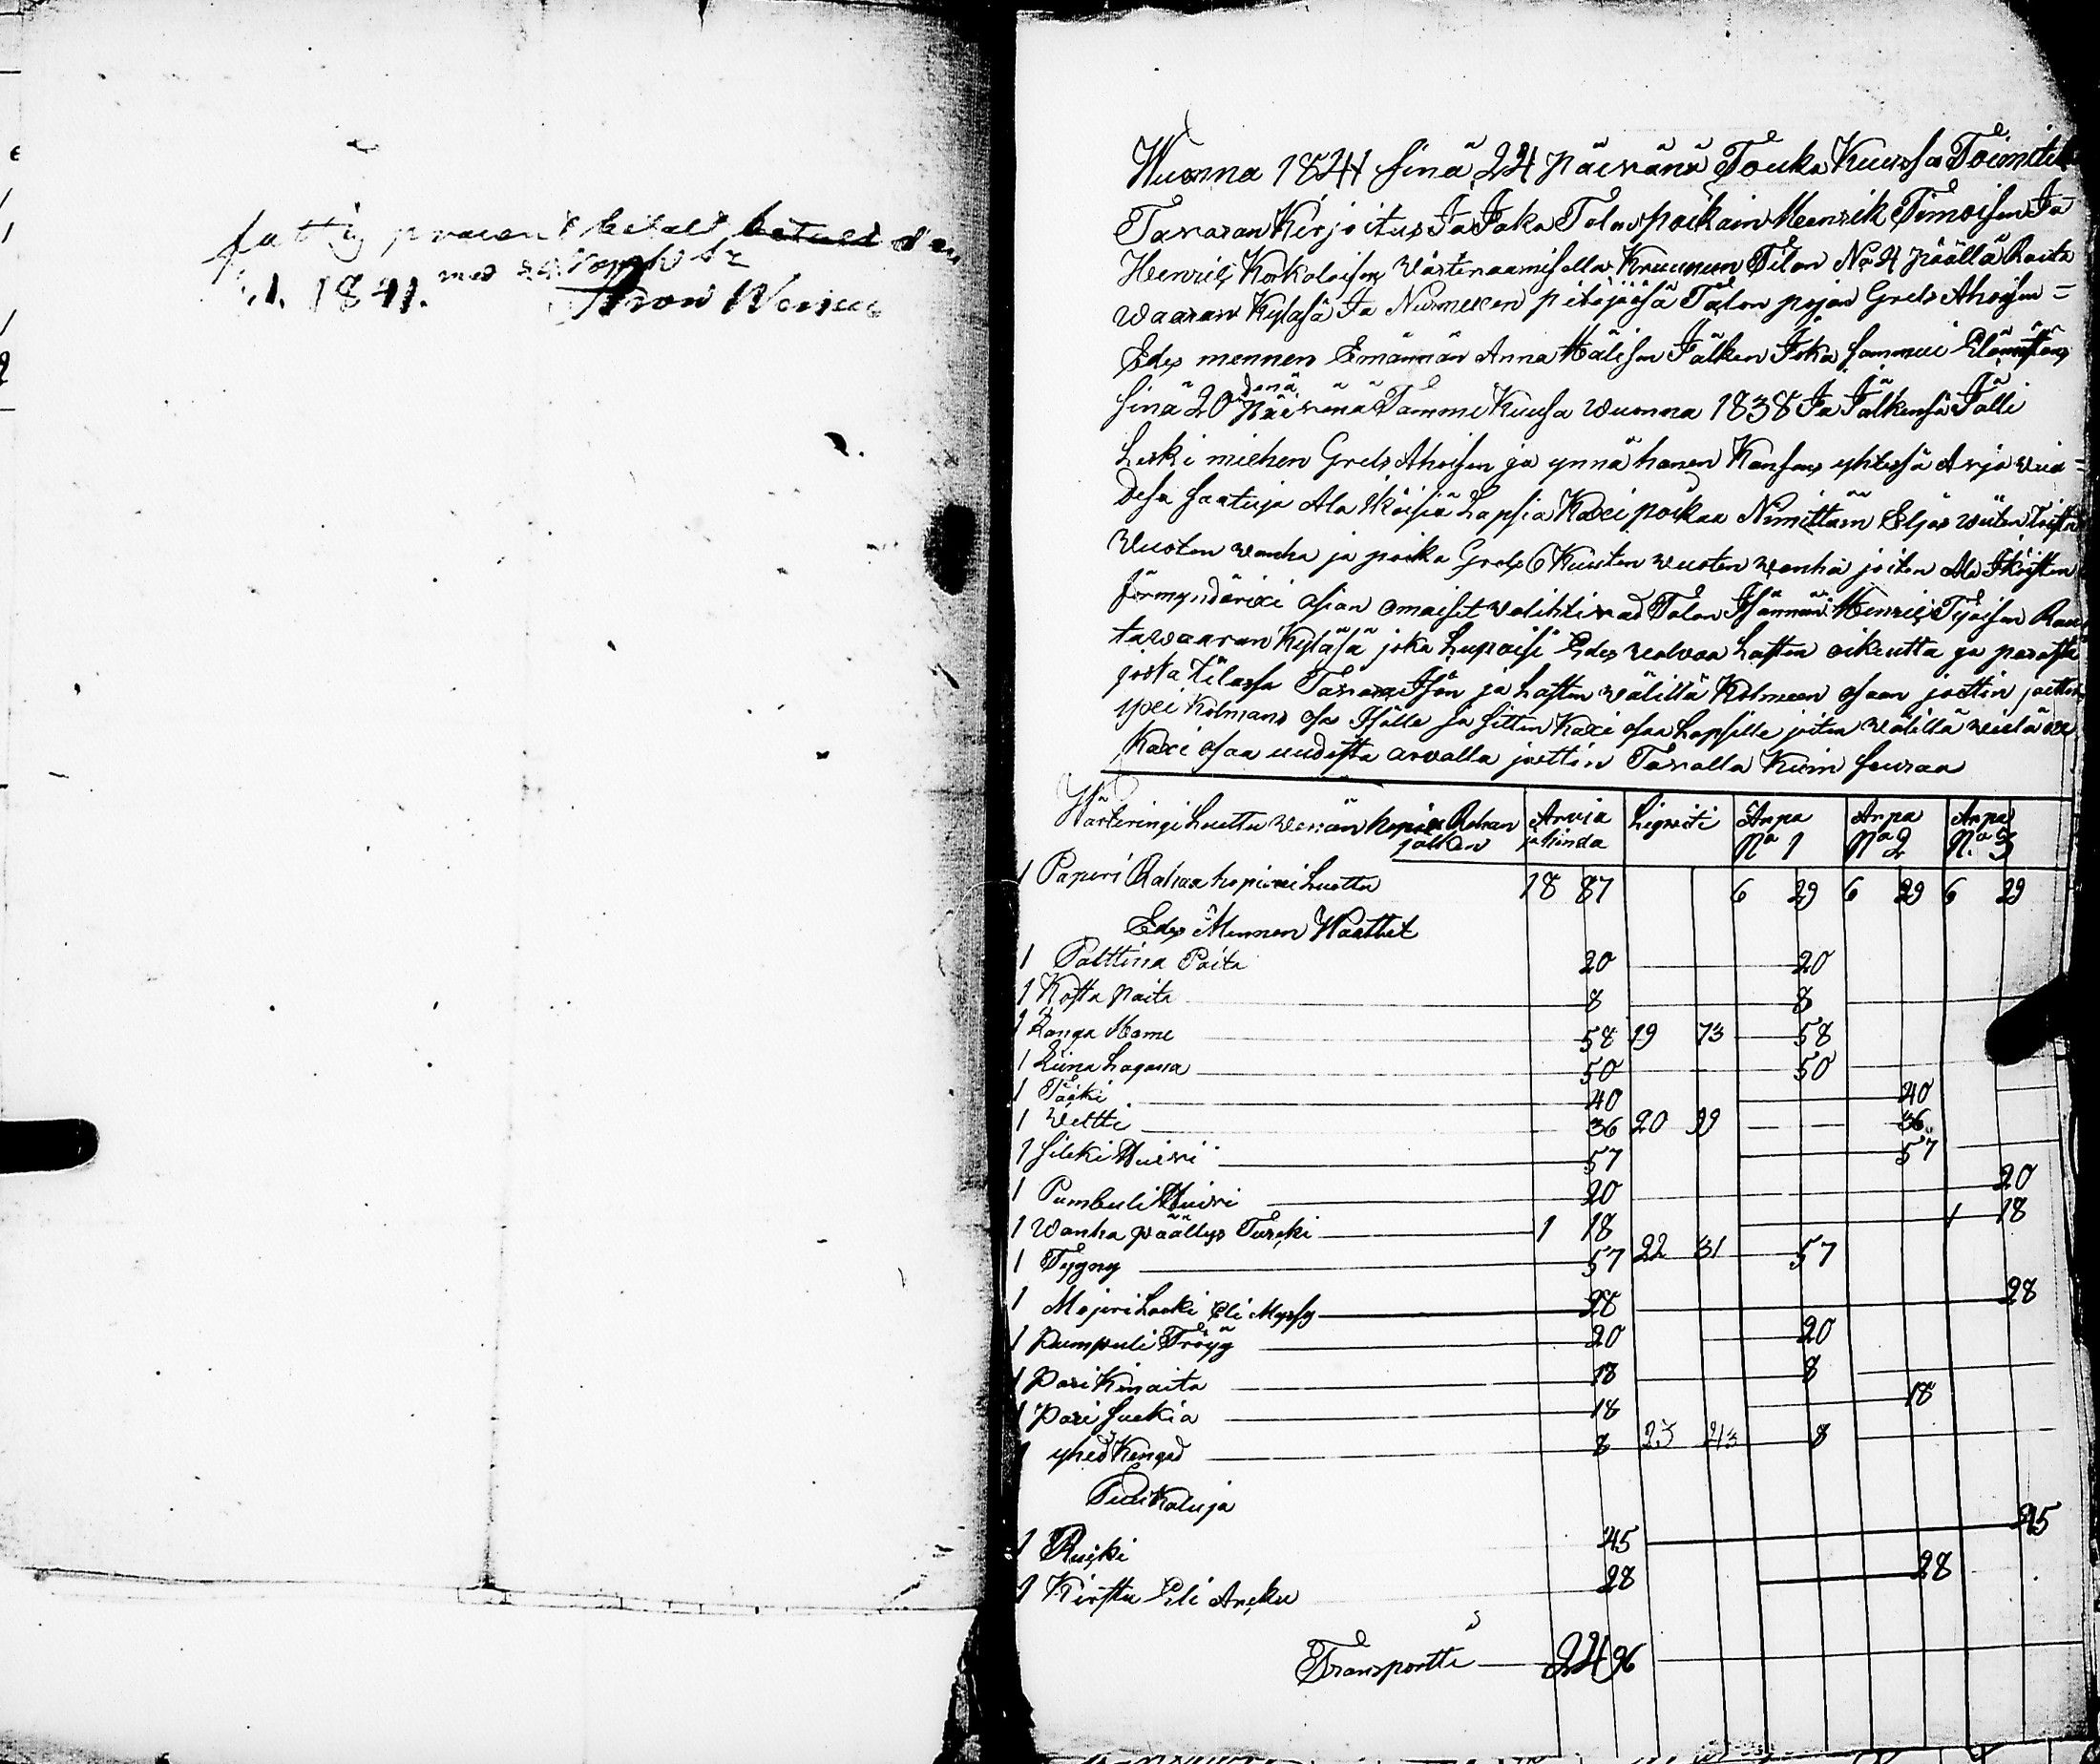 fattig procent betalt betalt den
1841. med
Aron
Wuonna 1841 sinä 24 päivänä Touko Kuussa Toimitet
Tavaran Kirjoitus Ja Jako Talon poikain Henrik Timoisen Ja
Henric Korkoloisen Wästeraamisella Kruunun Tilan No 4 päällä Rauta
waaran Kylässä Ja Nurmexen pitäjäässä Talon pojan Grels Ahoisen =
Edes mennen Emännän Anna Hälisen Jälken Joka sammui
sinä 20 denä päivänä Tammi Kuusa wuonna 1838 Ja Jälkensä Jätti
Leski miehen Grels Ahoisen ja ynnä hänen Kansans yhtessä Avio wuo =
desa saatuja Ala Ikäisiä Lapsia Kaxi poikaa Nimittäin Eljas wiiten Toista
Wuoten wanha ja poika Grels 6 Kuuten wuoten wanha joiten Ala Ikäisten
förmyndärixi asian omaiset walihtivad Talon Isännän Henric Rau
tawaaran Kylässä joka Lupaisi Edes walvoa Lasten oikeutta ja parasta
josta tilassa Tavara Isän ja Lasten wälillä Kolmeen osaan joettin joetten
yxi Kolmans osa Isälle ja sitten Kaxi osaa Lapsille joiten wälillä wielä
Kaxi osaa uudesta arvalla joettin Tavalla Kuin seuraa
Wärteringi Luettu Wenäin hopia Rahan jälken Arvia ja hinda Ligviti Arpa No 1 Arpa No 2 Arpa No 3
1 Paperi Rahaa hopiaxi Luettu 18 87 6 29 6 29 6 29
Edes Mennen Waattet
1 Palttina Paita 20 20
1 Kosta Paita 8 8
1 Ranga Hame 58 19 73 58
1 Liina Lagana 50 50
1 Täcki 40 40
1 Weltti 36 20 99 36
1 Silki Huivi 57 57
1 Pumbuli Huivi 20 20
1 Wanha päällys Turcki 1 18 1 18
1 Tygny 57 22 31 57
1 Majeri Lacki Eli Myssy 28 28
1 Pumpuli Tröyy 20 20
1 Pari Kinnaita 18 8
1 Pari Suckia 18 18
1 yhed Kengäd 8 23 43 8
Puu Kaluja
1 Rucki 45 45
1 Kirstu Eli Arcku 28 28
Transportti 24 96